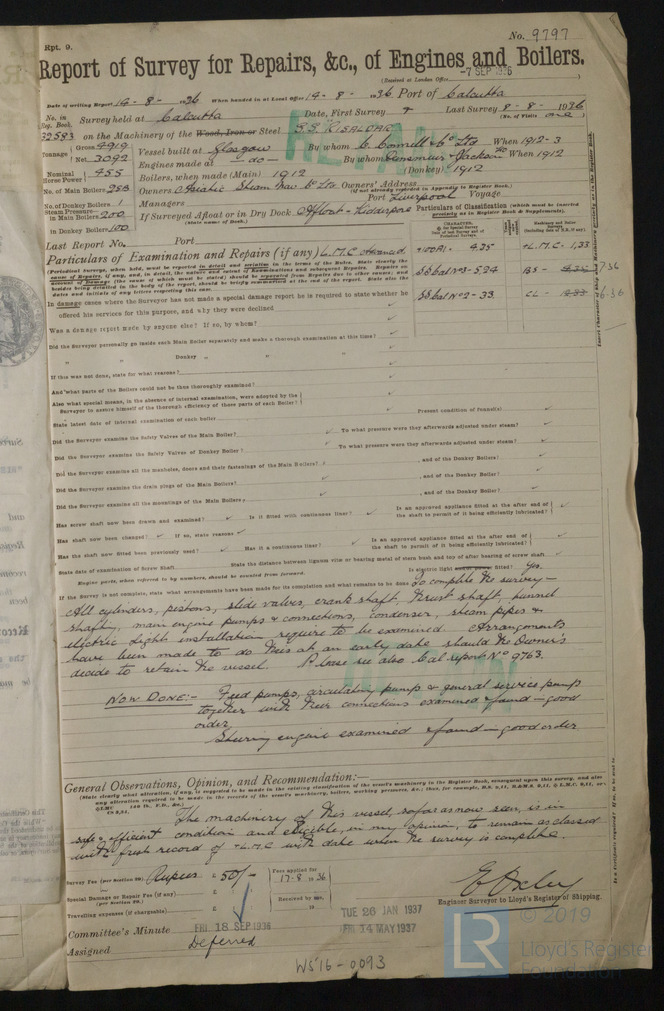 Rpt. 9.
No. 9797
Report of Survey for Repairs, &c., of Engines and Boilers.
(Received at London Office -7 SEP 1936)
Date of writing Report 14-8-1936 When handed in at Local Office 14-8-1936 Port of Calcutta
No. in Reg. Book. Survey held at Calcutta Date, First Survey Last Survey 8-8-1936
(No. of Visits one)
32583 on the Machinery of the Wood, Iron or Steel S.S. RISALDAR
Tonnage Gross 4919 Vessel built at Glasgow By whom C. Connell & Co Ltd When 1912-3
Net 3092 Engines made at -do- By whom Dunsmuir & Jackson When 1912
Nominal Horse Power 455 Boilers, when made (Main) 1912 (Donkey) 1912
No. of Main Boilers Owners Asiatic Steam Nav Co Ltd Owners' Address
(If not already recorded in Appendix to Register Book.)
No. of Donkey Boilers 1 Managers Port Liverpool Voyage
Steam Pressure in Main Boilers 200 If Surveyed Afloat or in Dry Dock Afloat - Kidderpore
(State name of Dock.)
in Donkey Boilers 100
Particulars of Classification (which must be inserted precisely as in Register Book & Supplements).
Last Report No. Port
+100A1 - 4.35 +L.M.C. 1,33
SS Cal No 3 - 5.24 BS - 7.36
SS Cal No 2 - 33 CL - 6.36
Particulars of Examination and Repairs (if any) L.M.C. Advanced
In damage cases where the Surveyor has not made a special damage report he is required to state whether he
offered his services for this purpose, and why they were declined
Was a damage report made by anyone else? If so, by whom?
Did the Surveyor personally go inside each Main Boiler separately and make a thorough examination at this time?
" " Donkey " " "
If this was not done, state for what reasons?
And what parts of the Boilers could not be thus thoroughly examined?
Also what special means, in the absence of internal examination, were adopted by the
Surveyor to assure himself of the thorough efficiency of those parts of each Boiler?
State latest date of internal examination of each boiler Present condition of funnel(s)
Did the Surveyor examine the Safety Valves of the Main Boiler? To what pressure were they afterwards adjusted under steam?
Did the Surveyor examine the Safety Valves of Donkey Boiler? To what pressure were they afterwards adjusted under steam?
Did the Surveyor examine all the manholes, doors and their fastenings of the Main Boilers? , and of the Donkey Boilers?
Did the Surveyor examine the drain plugs of the Main Boilers? , and of the Donkey Boiler?
Did the Surveyor examine all the mountings of the Main Boilers, , and of the Donkey Boiler?
Has screw shaft now been drawn and examined? Is it fitted with continuous liner? Is an approved appliance fitted at the after end of the shaft to permit of it being efficiently lubricated?
Has shaft now been changed? If so, state reasons
Has the shaft now fitted been previously used? Has it a continuous liner? Is an approved appliance fitted at the after end of the shaft to permit of it being efficiently lubricated?
State date of examination of Screw Shaft State the distance between lignum vitæ or bearing metal of stern bush and top of after bearing of screw shaft
Engine parts, when referred to by numbers, should be counted from forward. Is electric light fitted? Yes.
If the Survey is not complete, state what arrangements have been made for its completion and what remains to be done To complete the survey -
All cylinders, pistons, slide valves, crank shaft, thrust shaft, tunnel
shafting, main engine pumps & connections, condenser, steam pipes &
electric light installation require to be examined. Arrangements
have been made to do this at an early date should the Owner's
decide to retain the vessel. Please see also Cal report No 9763.
NOW DONE:- Feed pumps, circulating pump & general service pump
together with their connections examined & found - good
order.
Steering engine examined & found - good order
General Observations, Opinion, and Recommendation:-
The machinery of this vessel, so far as now seen, is in
safe & efficient condition and eligible, in my opinion, to remain as classed
with fresh record of +L.M.C with date when the survey is complete.
Survey Fee (per Section 29) Rupees 50/- Fees applied for 17-8-1936
Special Damage or Repair Fee (if any) (per Section 29.) £
Received by me,
Travelling expenses (if chargeable) £
E Oxley
Engineer Surveyor to Lloyd's Register of Shipping.
Committee's Minute FRI 18 SEP 1936 TUE 26 JAN 1937
FRI 14 MAY 1937
Assigned Deferred
W516-0093
© 2019
LR
Lloyd's Register
Foundation